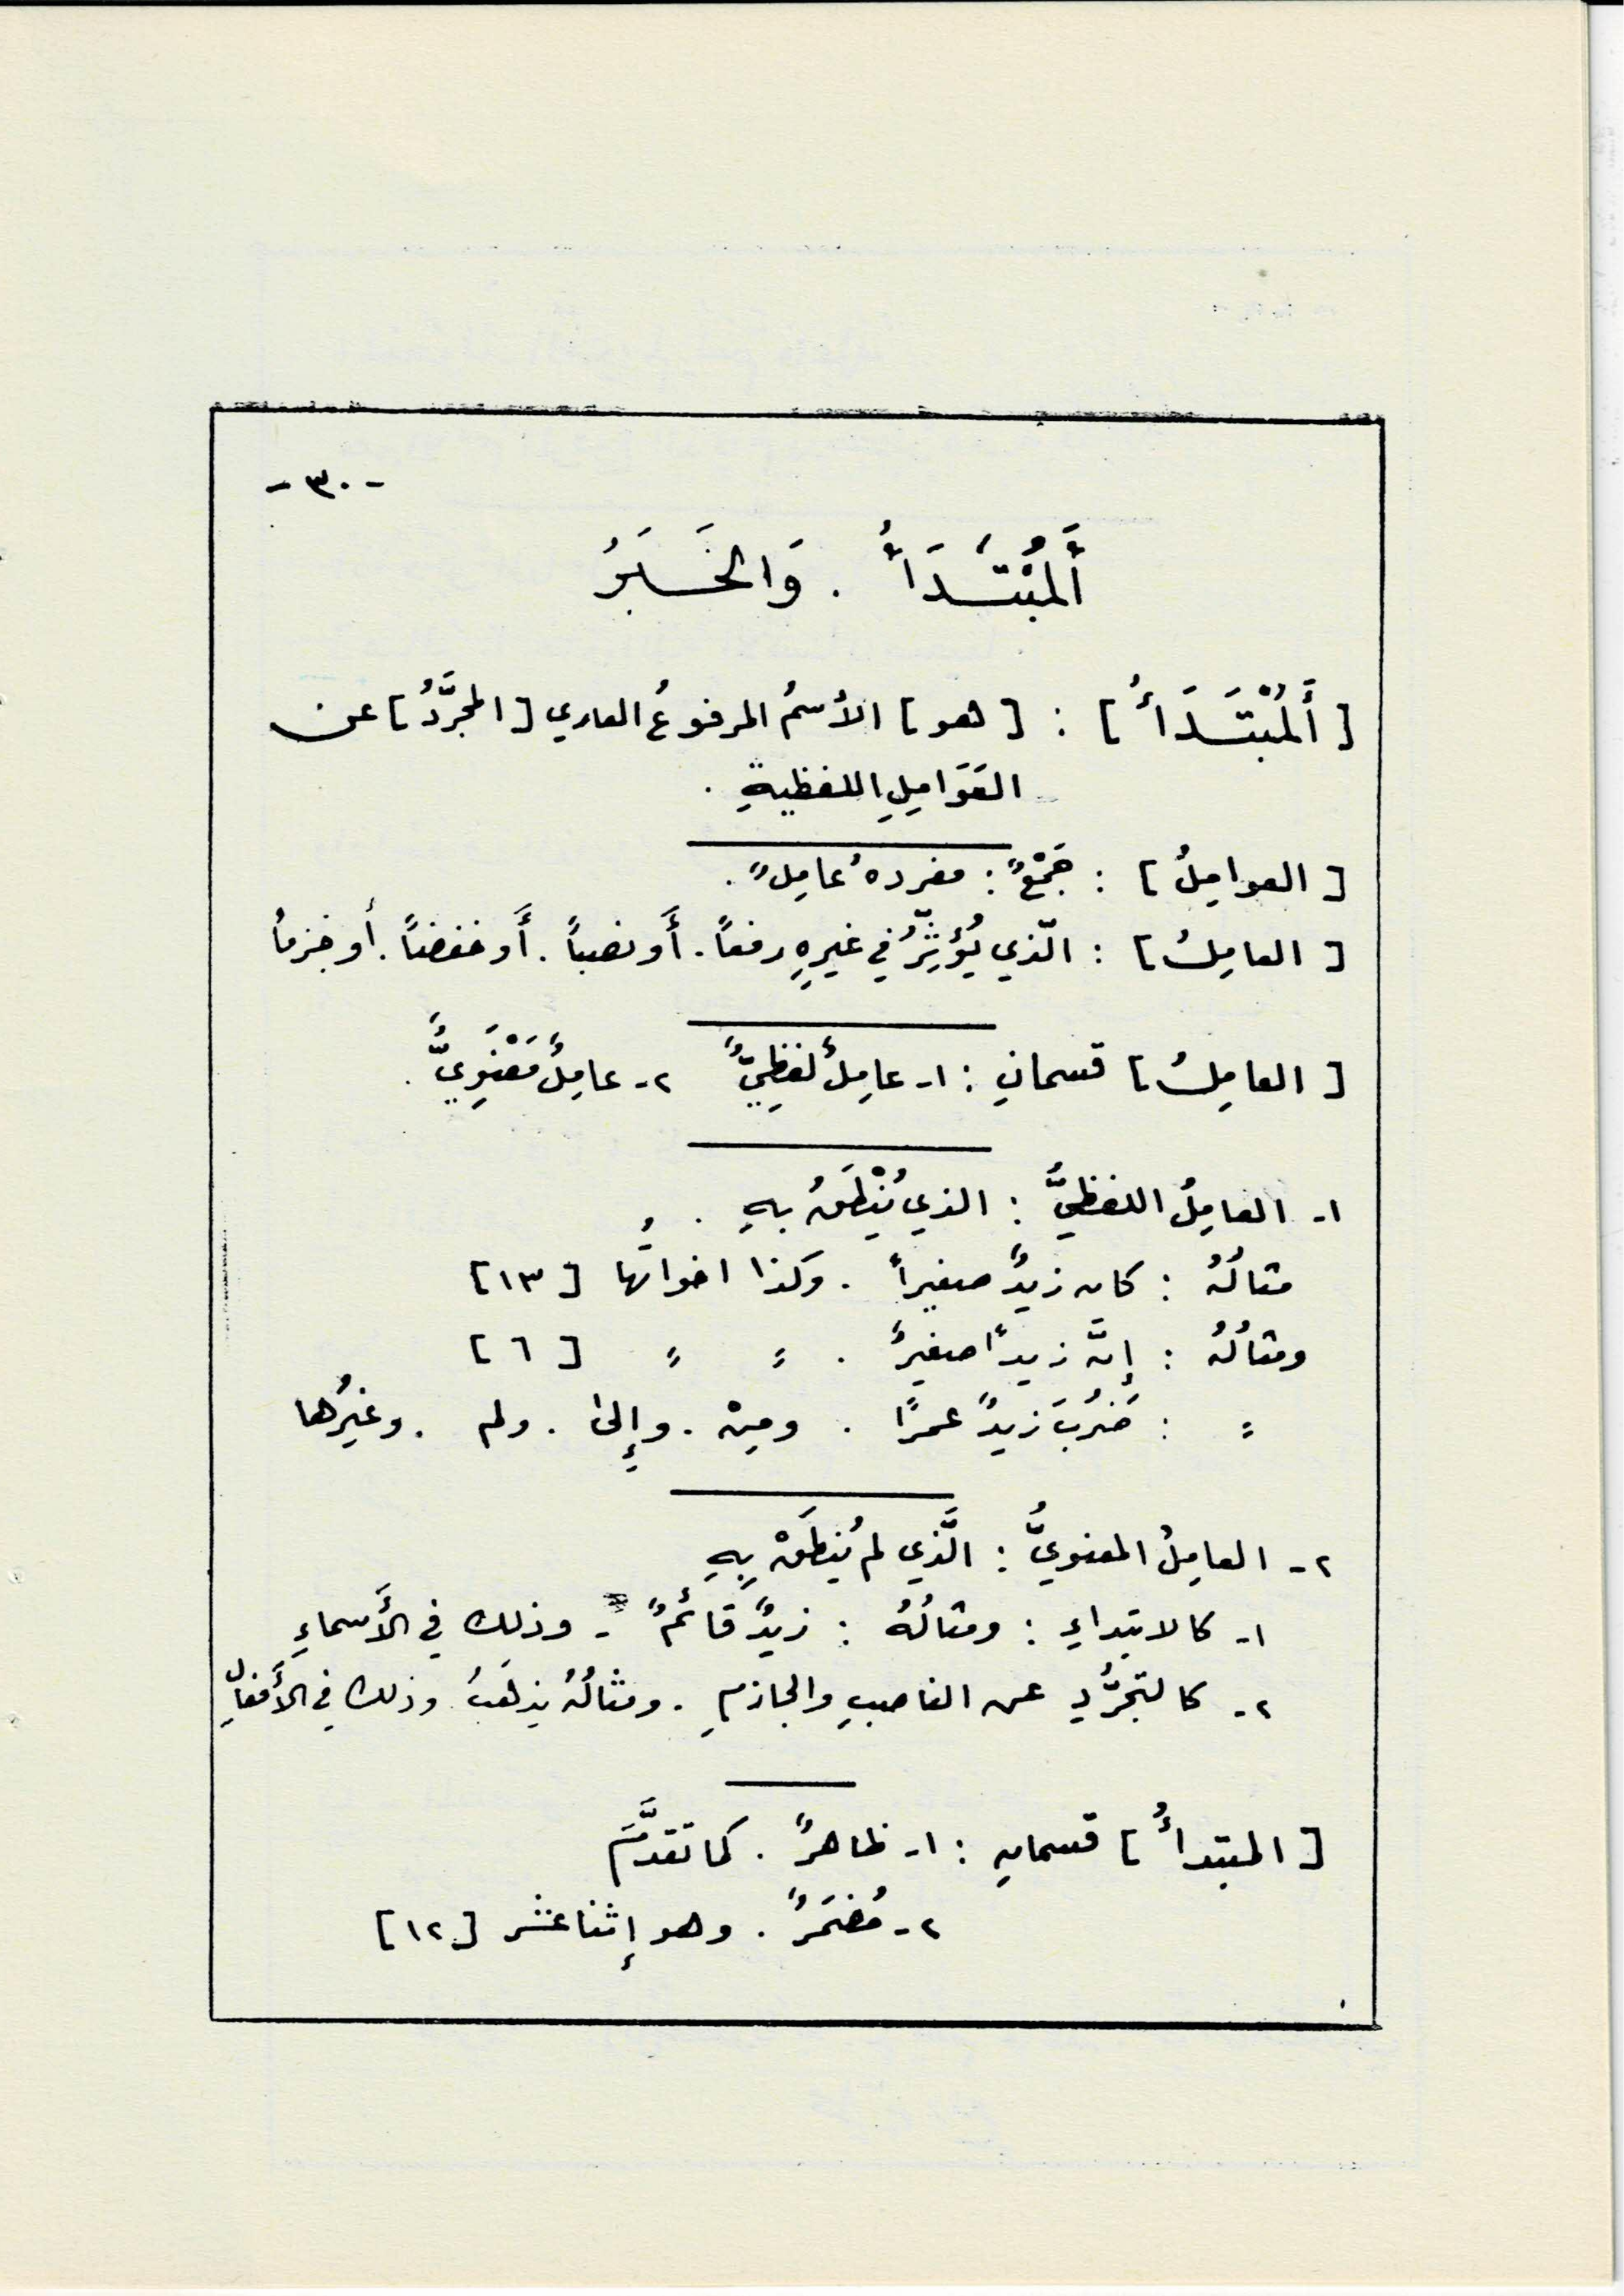 - ٣٠ -
أَلْمُبْتَدَأُ . وَالخَبَرُ
[ أَلْمُبْتَدَأُ ] : [ هو ] الاُسمُ المرفوعُ العاري [ المجرَّدُ ] عن
العَوَامِلِ اللفظيةِ .
[ العوامِلُ ] : جَمْعٌ : مفردهُ عامِلٌ .
[ العامِلُ ] : الّذي يُؤَثِّرُ في غيرِهِ رفعاً . أَو نصباً . أَو خفضاً . أو جزماً
[ العامِلُ ] قسمانِ : ١- عامِلٌ لفظِيٌّ ٢- عامِلٌ مَعْنَوِيٌّ .
١- العامِلُ اللفظيُّ : الذي يُنْطَقُ بهِ .
مثالُهُ : كان زيدٌ صغيراً . وكذا اخواتُها [ ١٣ ]
ومثالُهُ : إنَّ زيداً صغيرٌ . " " [ ٦ ]
" : ضَرَبَ زيدٌ عمرًا . ومِنْ . وإِلىٰ . ولم . وغيرُها
٢- العامِلُ المعنويُّ : الَّذي لم يُنطَقْ بِهِ
١- كالابتداءِ : ومثالُهُ : زيدٌ قائمٌ - وذلك في الأَسماءِ
٢- كالتجرُّدِ عن الناصبِ والجازمِ . ومثالُهُ يذهَبُ . وذلك في الأَفعالِ
[ المبتدأُ ] قسمانِ : ١- ظاهرٌ . كما تقدَّمَ
٢- مُضمَرٌ . وهو إثنا عشر [ ١٢ ]